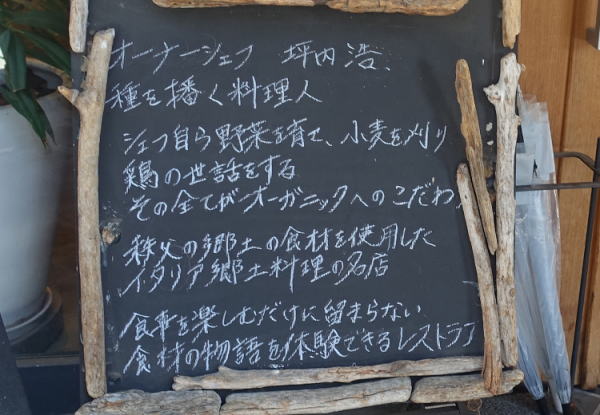 オーナーシェフ 坪内 浩、
種を播く料理人
シェフ自ら野菜を育て、小麦を刈り
鶏の世話をする
その全てがオーガニックへのこだわ
秩父の郷土の食材を使用した
イタリア郷土料理の名店
食事を楽しむだけに留まらない
食材の物語を体験できるレストラン